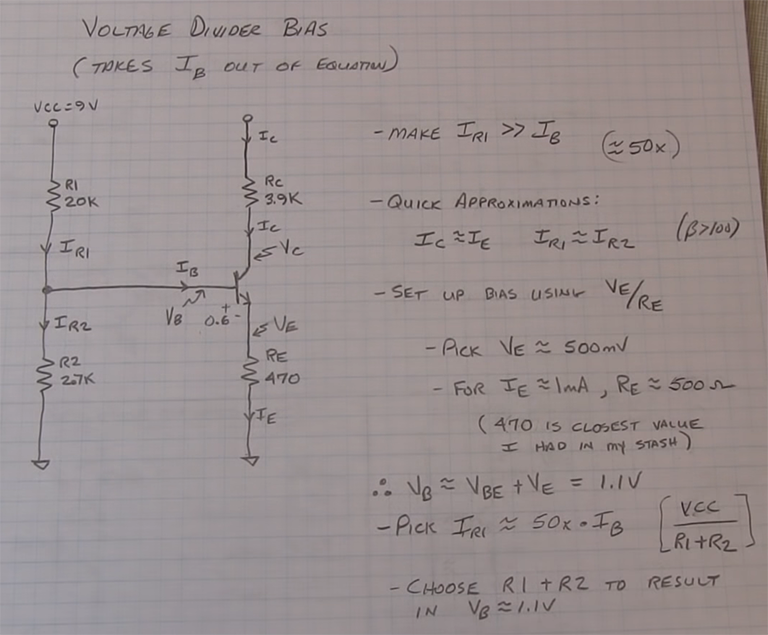 VOLTAGE DIVIDER BIAS
(TAKES IB OUT OF EQUATION)
VCC=9V
IC
R1
20K
RC
3.9K
IR1
IC
VC
IB
VB
+
0.6-
IR2
VE
R2
2.7K
RE
470
IE
- MAKE IR1 >> IB (≈50x)
- QUICK APPROXIMATIONS:
IC ≈ IE IR1 ≈ IR2 (β>100)
- SET UP BIAS USING VE/RE
- PICK VE ≈ 500mV
- FOR IE ≈ 1mA, RE ≈ 500Ω
(470 IS CLOSEST VALUE
I HAD IN MY STASH)
∴ VB ≈ VBE + VE = 1.1V
- PICK IR1 ≈ 50x • IB [VCC/R1+R2]
- CHOOSE R1 + R2 TO RESULT
IN VB ≈ 1.1V